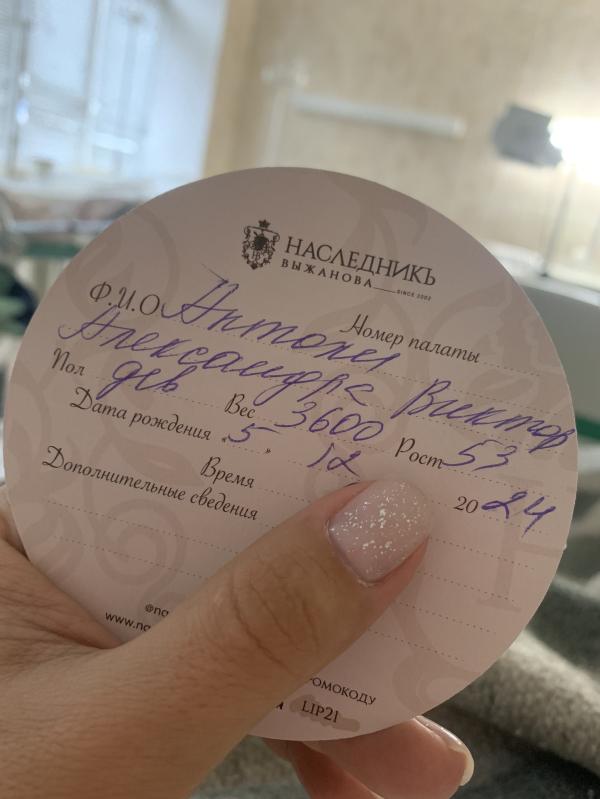 НАСЛЕДНИКЪ
ВЫЖАНОВА
SINCE 2002
Ф.И.О Антоны Номер палаты
Александра Виктор
Пол дев Вес 3600 Рост 53
Дата рождения «5» 12 2024
Время
Дополнительные сведения
ОМОКОДУ
LIP21